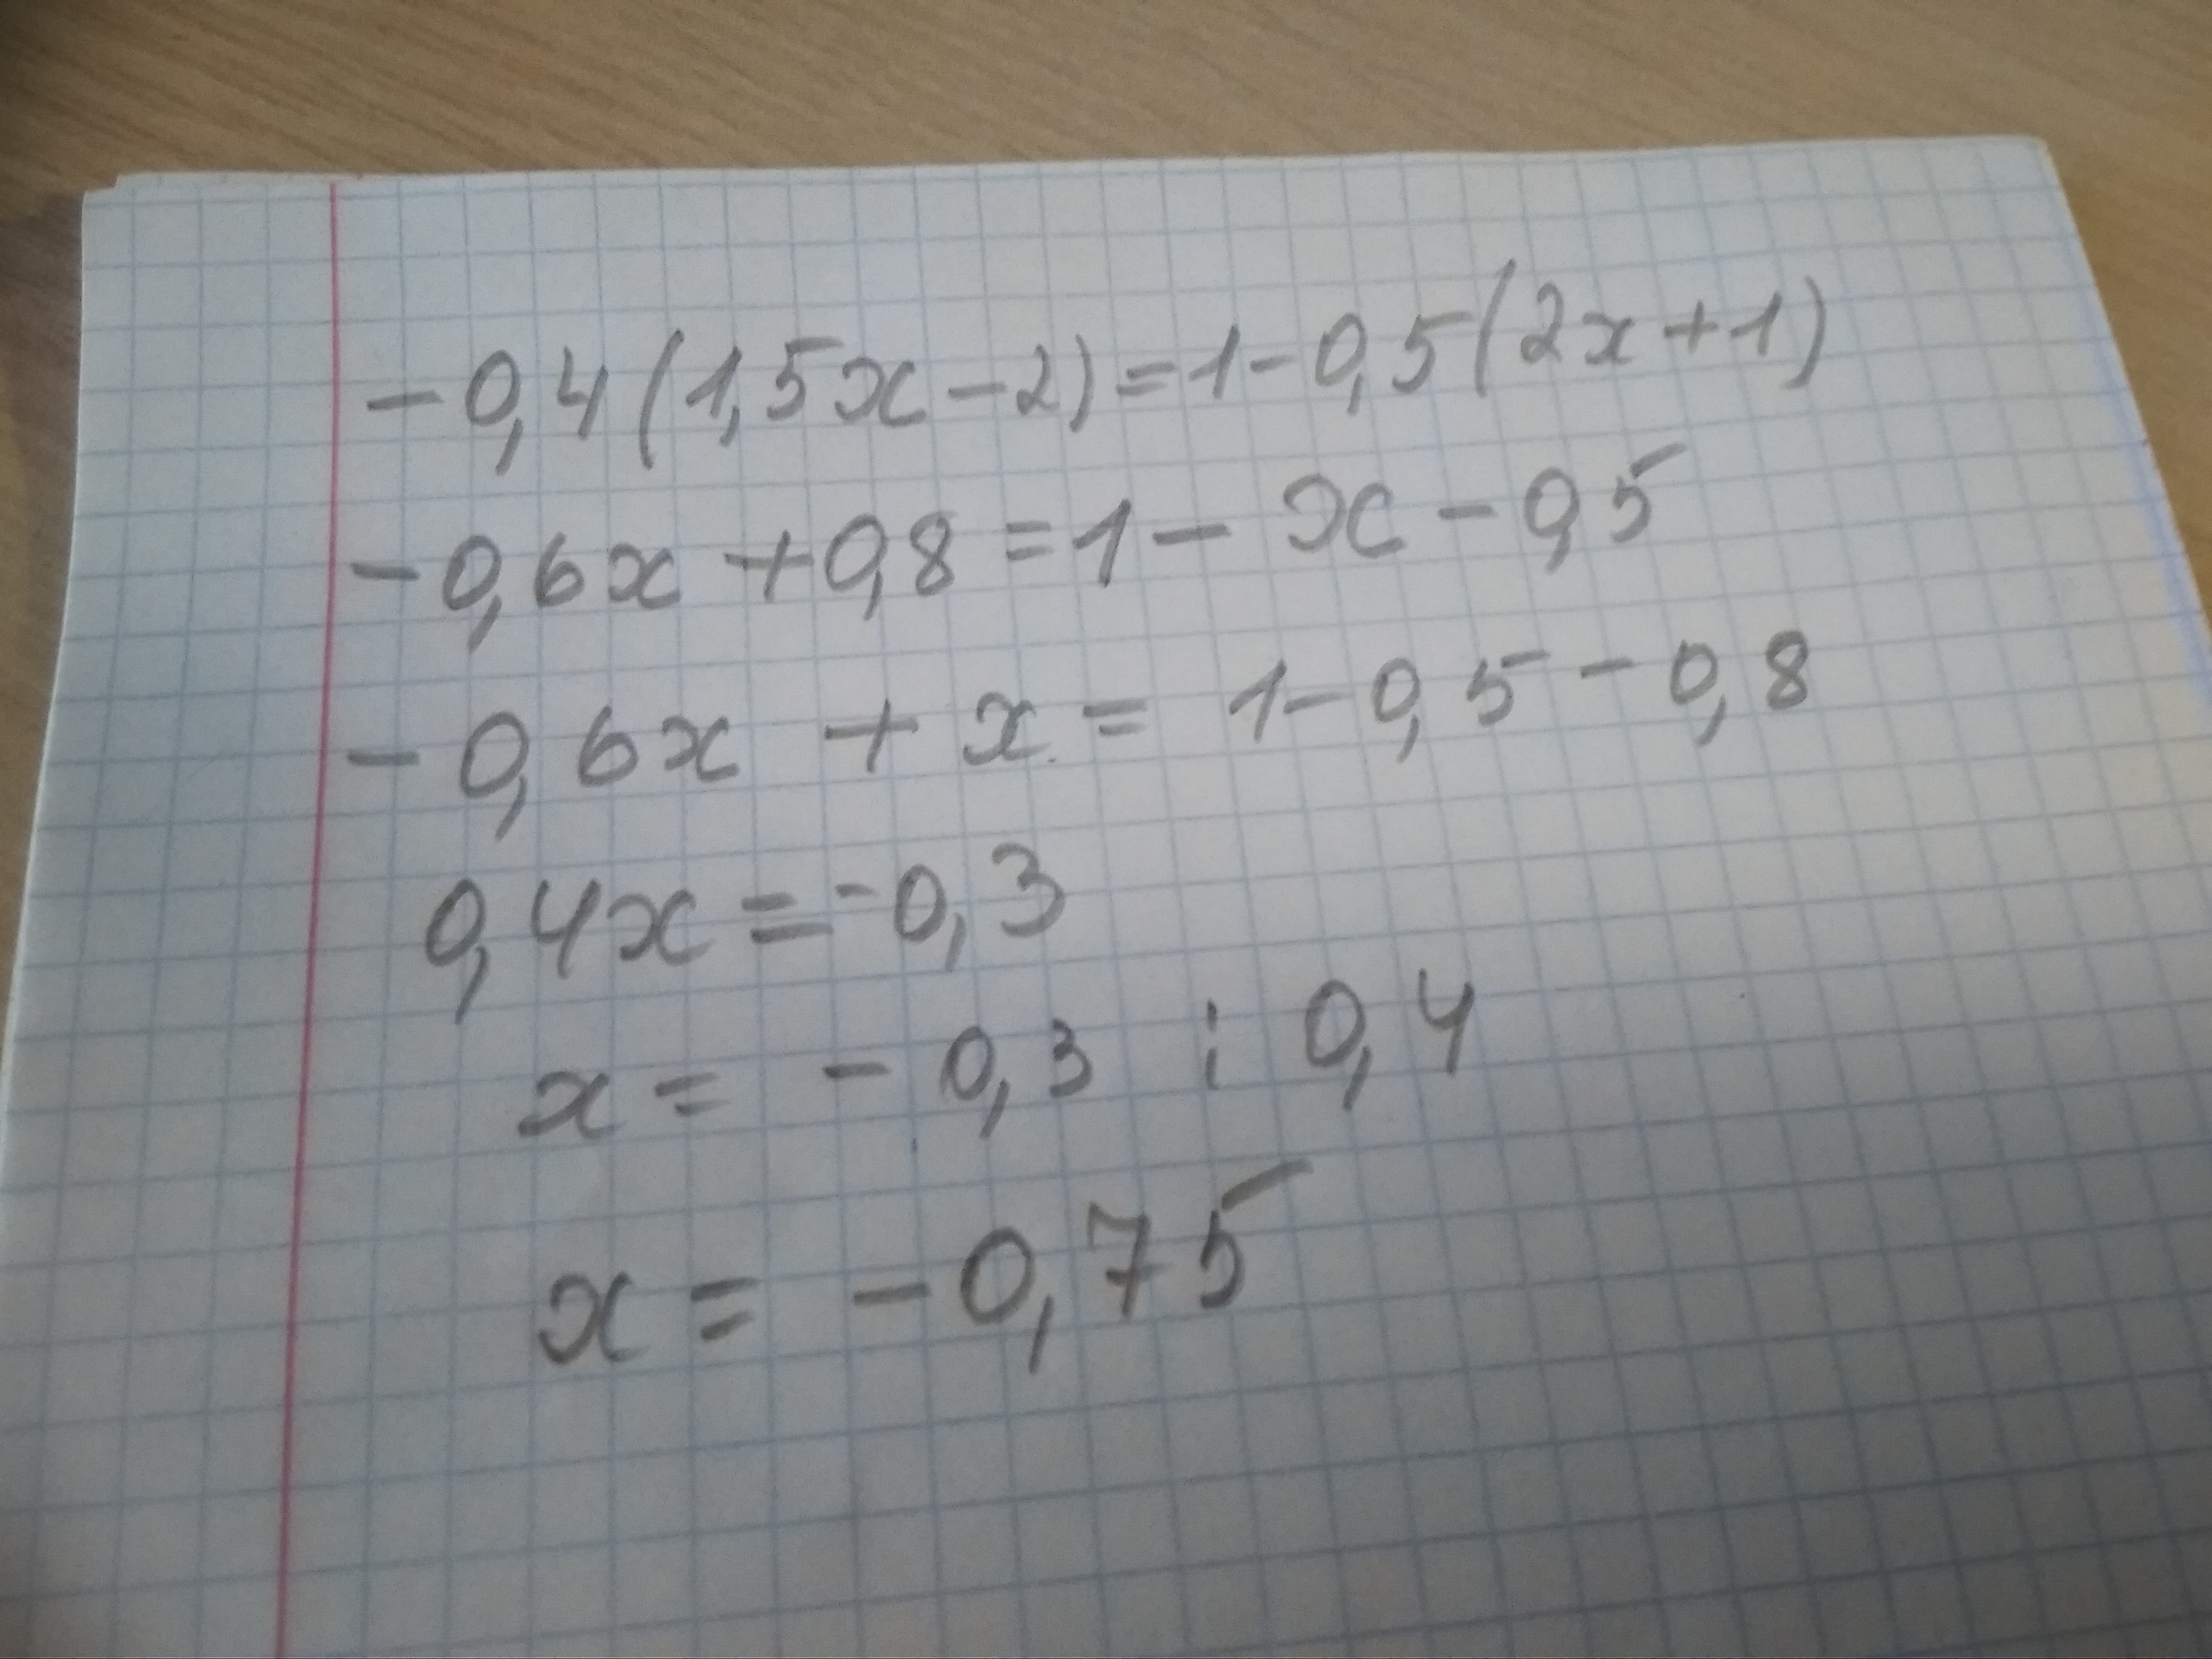 -0,4(1,5x-2)=1-0,5(2x+1)
-0,6x+0,8=1-x-0,5
-0,6x+x=1-0,5-0,8
0,4x=-0,3
x=-0,3:0,4
x=-0,75